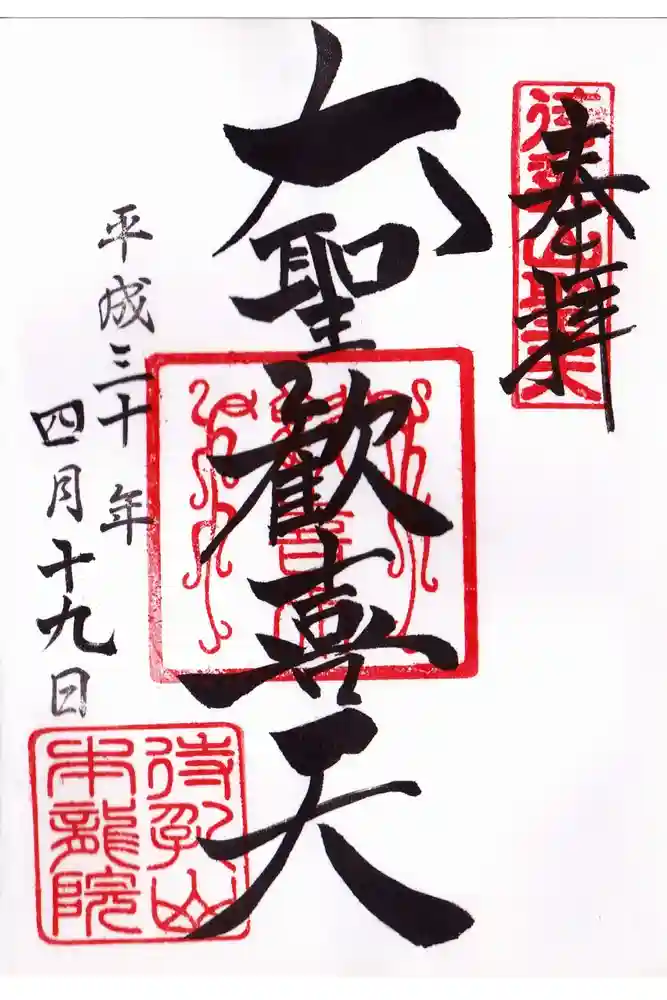 奉拝
待乳山聖天
大聖歓喜天
平成三十年
四月十九日
待乳山
本龍院